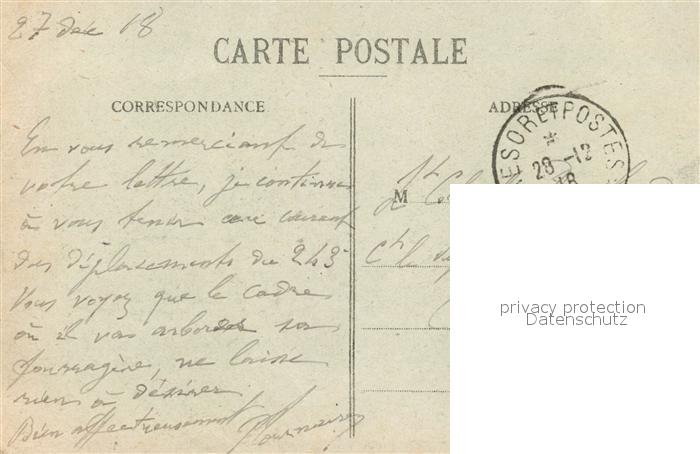 27 Déc 18
CARTE POSTALE
CORRESPONDANCE
ADRESSE
TRESOR ET POSTES
28 -12
18
En vous remerciant de
votre lettre, je continue
à vous tenir au courant
des déplacements du 243
Vous voyez que le cadre
où il va arborer sa
fourragère, ne laisse
rien à désirer
Bien affectueusement
M Lt
privacy protection
Datenschutz